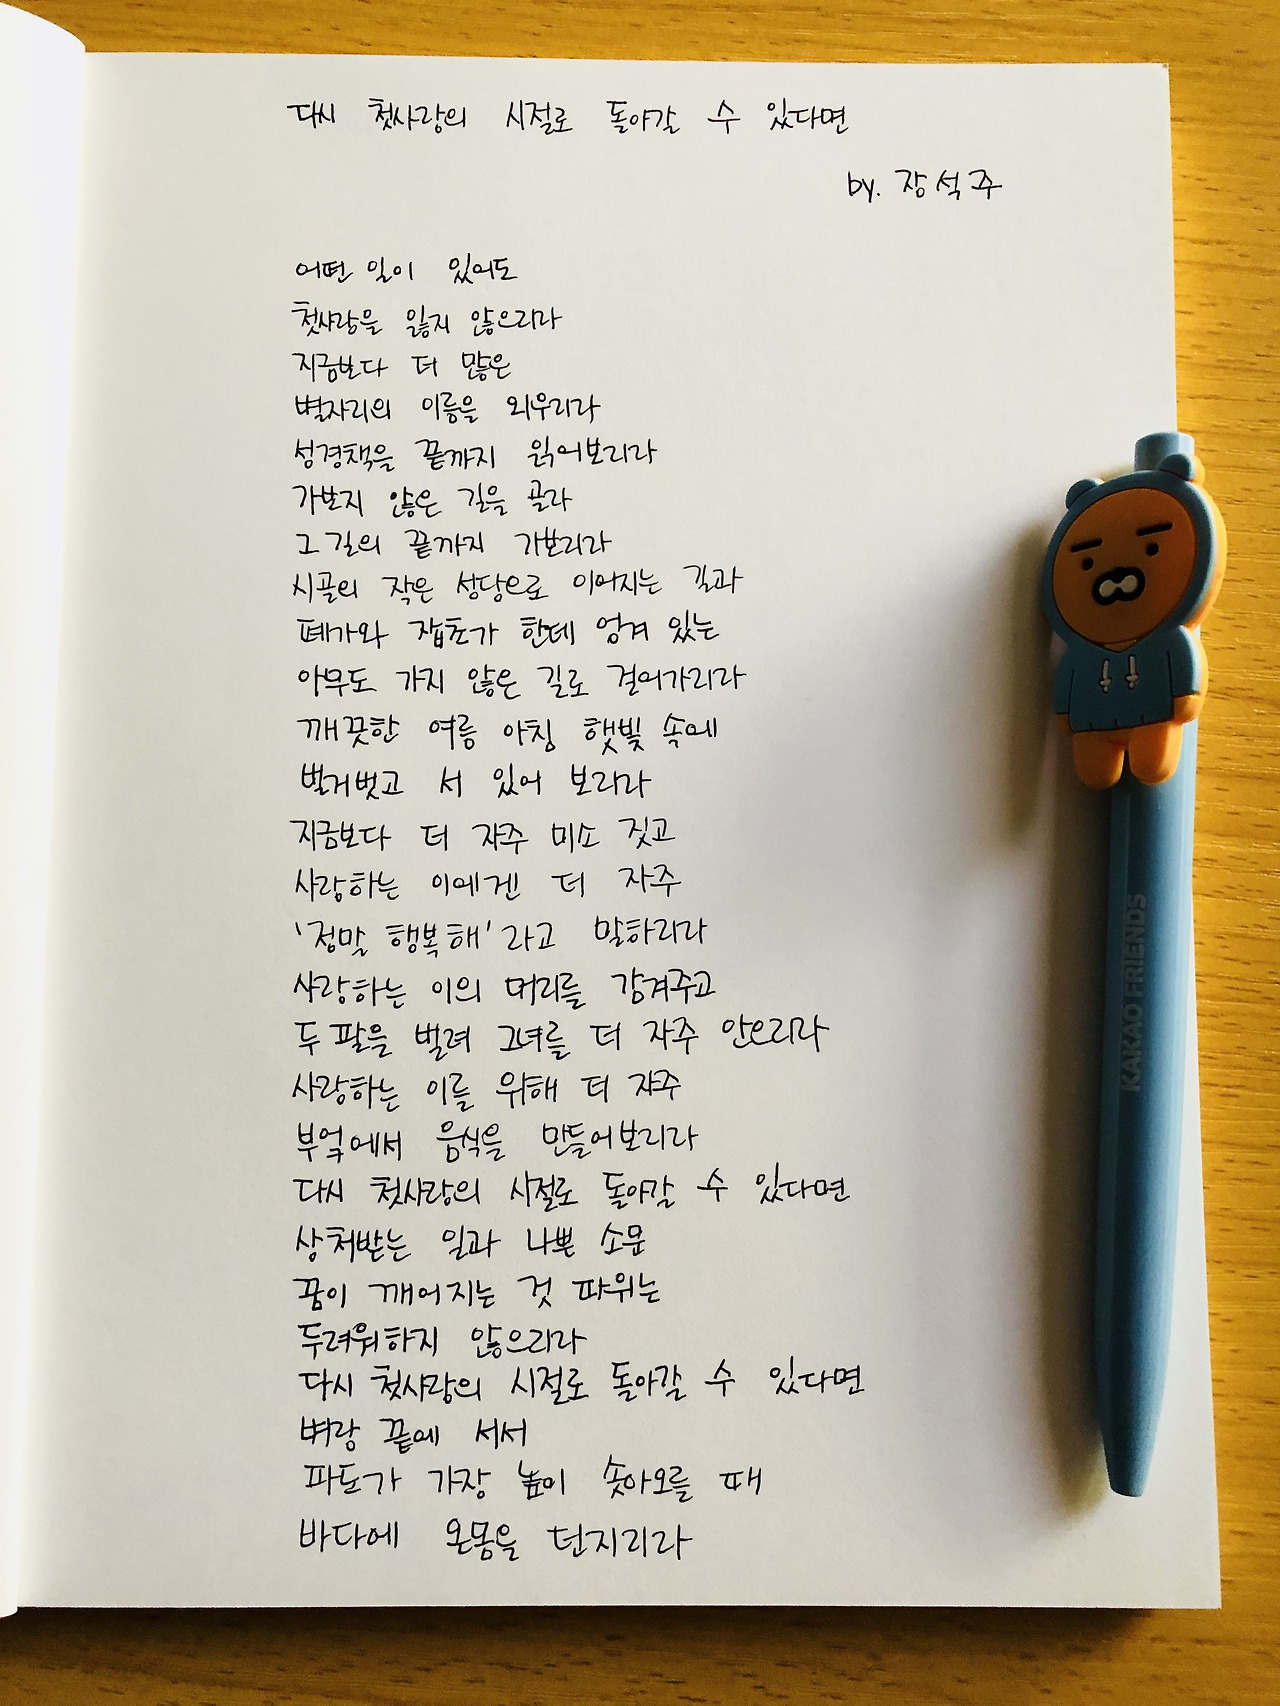 다시 첫사랑의 시절로 돌아갈 수 있다면
by. 장석주
어떤 일이 있어도
첫사랑을 잃지 않으리라
지금보다 더 많은
별자리의 이름을 외우리라
성경책을 끝까지 읽어보리라
가보지 않은 길을 골라
그 길의 끝까지 가보리라
시골의 작은 성당으로 이어지는 길과
폐가와 잡초가 한데 엉겨 있는
아무도 가지 않은 길로 걸어가리라
깨끗한 여름 아침 햇빛 속에
벌거벗고 서 있어 보리라
지금보다 더 자주 미소 짓고
사랑하는 이에겐 더 자주
'정말 행복해'라고 말하리라
사랑하는 이의 머리를 감겨주고
두 팔을 벌려 그녀를 더 자주 안으리라
사랑하는 이를 위해 더 자주
부엌에서 음식을 만들어보리라
다시 첫사랑의 시절로 돌아갈 수 있다면
상처받는 일과 나쁜 소문
꿈이 깨어지는 것 따위는
두려워하지 않으리라
다시 첫사랑의 시절로 돌아갈 수 있다면
벼랑 끝에 서서
파도가 가장 높이 솟아오를 때
바다에 온몸을 던지리라
KAKAO FRIENDS